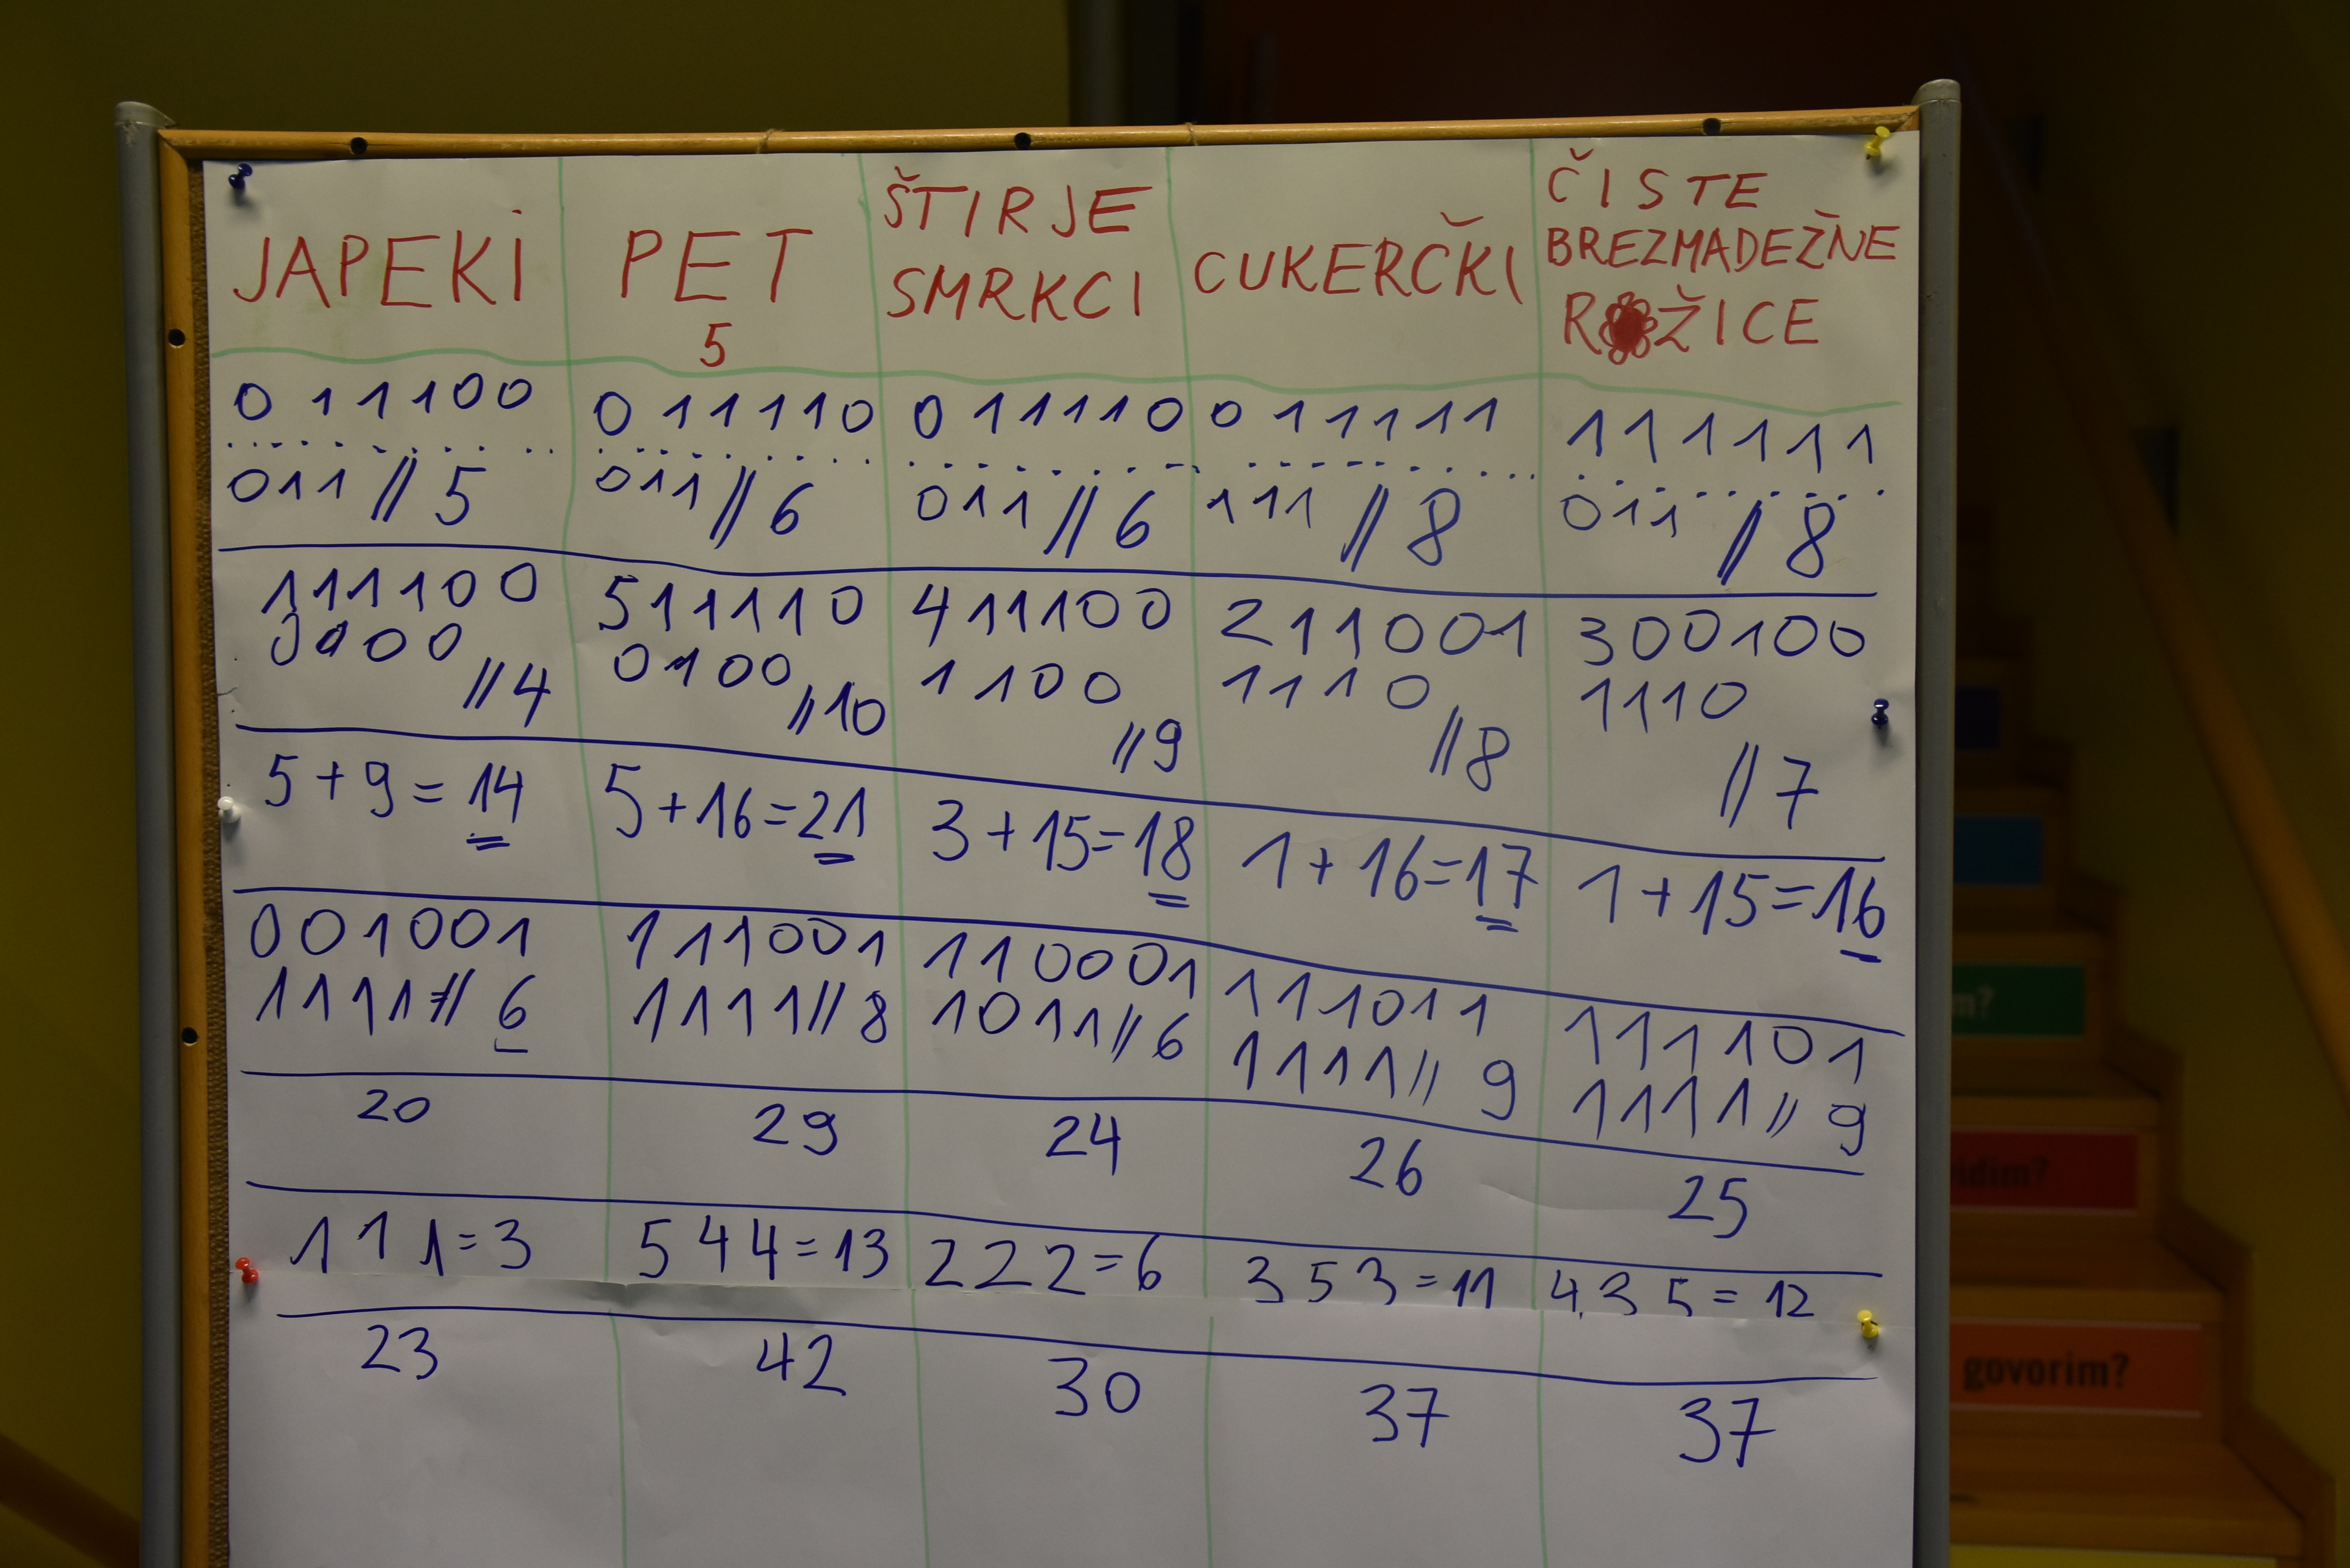 JAPEKI PET 5 ŠTIRJE SMRKCI CUKERČKI ČISTE BREZMADEŽNE ROŽICE
011100 011110 011110 011111 111111
011 // 5 011 // 6 011 // 6 111 // 8 011 // 8
111100 511110 411100 211001 300100
0100 // 4 0100 // 10 1100 // 9 1110 // 8 1110 // 7
5+9=14 5+16=21 3+15=18 1+16=17 1+15=16
001001 111001 110001 111011 111101
1111 // 6 1111 // 8 1011 // 6 1111 // 9 1111 // 9
20 29 24 26 25
111=3 544=13 222=6 353=11 4,35=12
23 42 30 37 37
govorim?